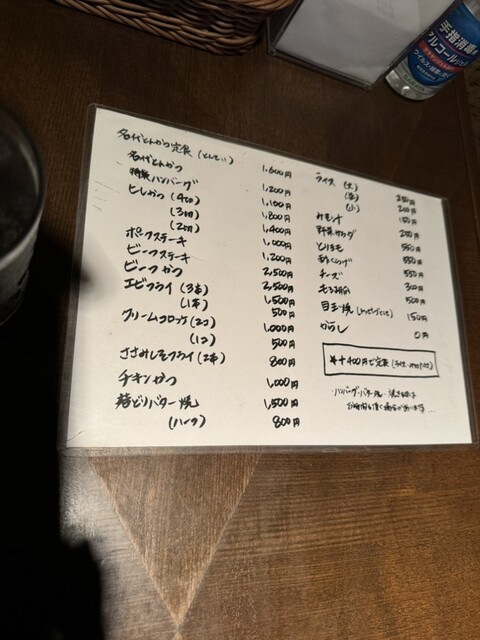 名代とんかつ定食(とんてい) 1,600円
名代とんかつ 1,200円
特製ハンバーグ 1,100円
ヒレかつ(4切) 1,800円
(3切) 1,400円
(2切) 1,000円
ポークステーキ 1,200円
ビーフステーキ 2,500円
ビーフかつ 2,500円
エビフライ(3本) 1,500円
(1本) 500円
クリームコロッケ(2コ) 1,000円
(1コ) 500円
ささみしそフライ(2本) 800円
チキンかつ 1,000円
若どりバター焼 1,500円
(ハーフ) 800円
ライス(大) 250円
(中) 200円
(小) 150円
みそ汁 200円
野菜サラダ 550円
550円
550円
チーズ 300円
もろ胡瓜 500円
目玉焼 150円
からし 0円
+400円で定食
ハンバーグ・バター焼
お時間を頂く場合が
手指消毒
アルコール